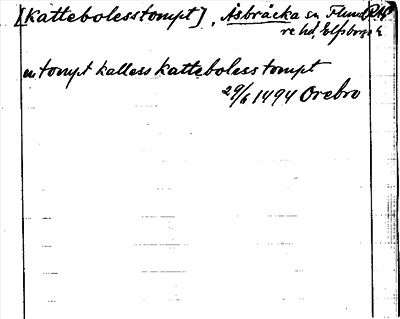 [Kattebolesstompt], Åsbräcka sn Flund
re hd, Elfsborgs
en tompt kalless katteboless tompt
29/6 1494 Örebro